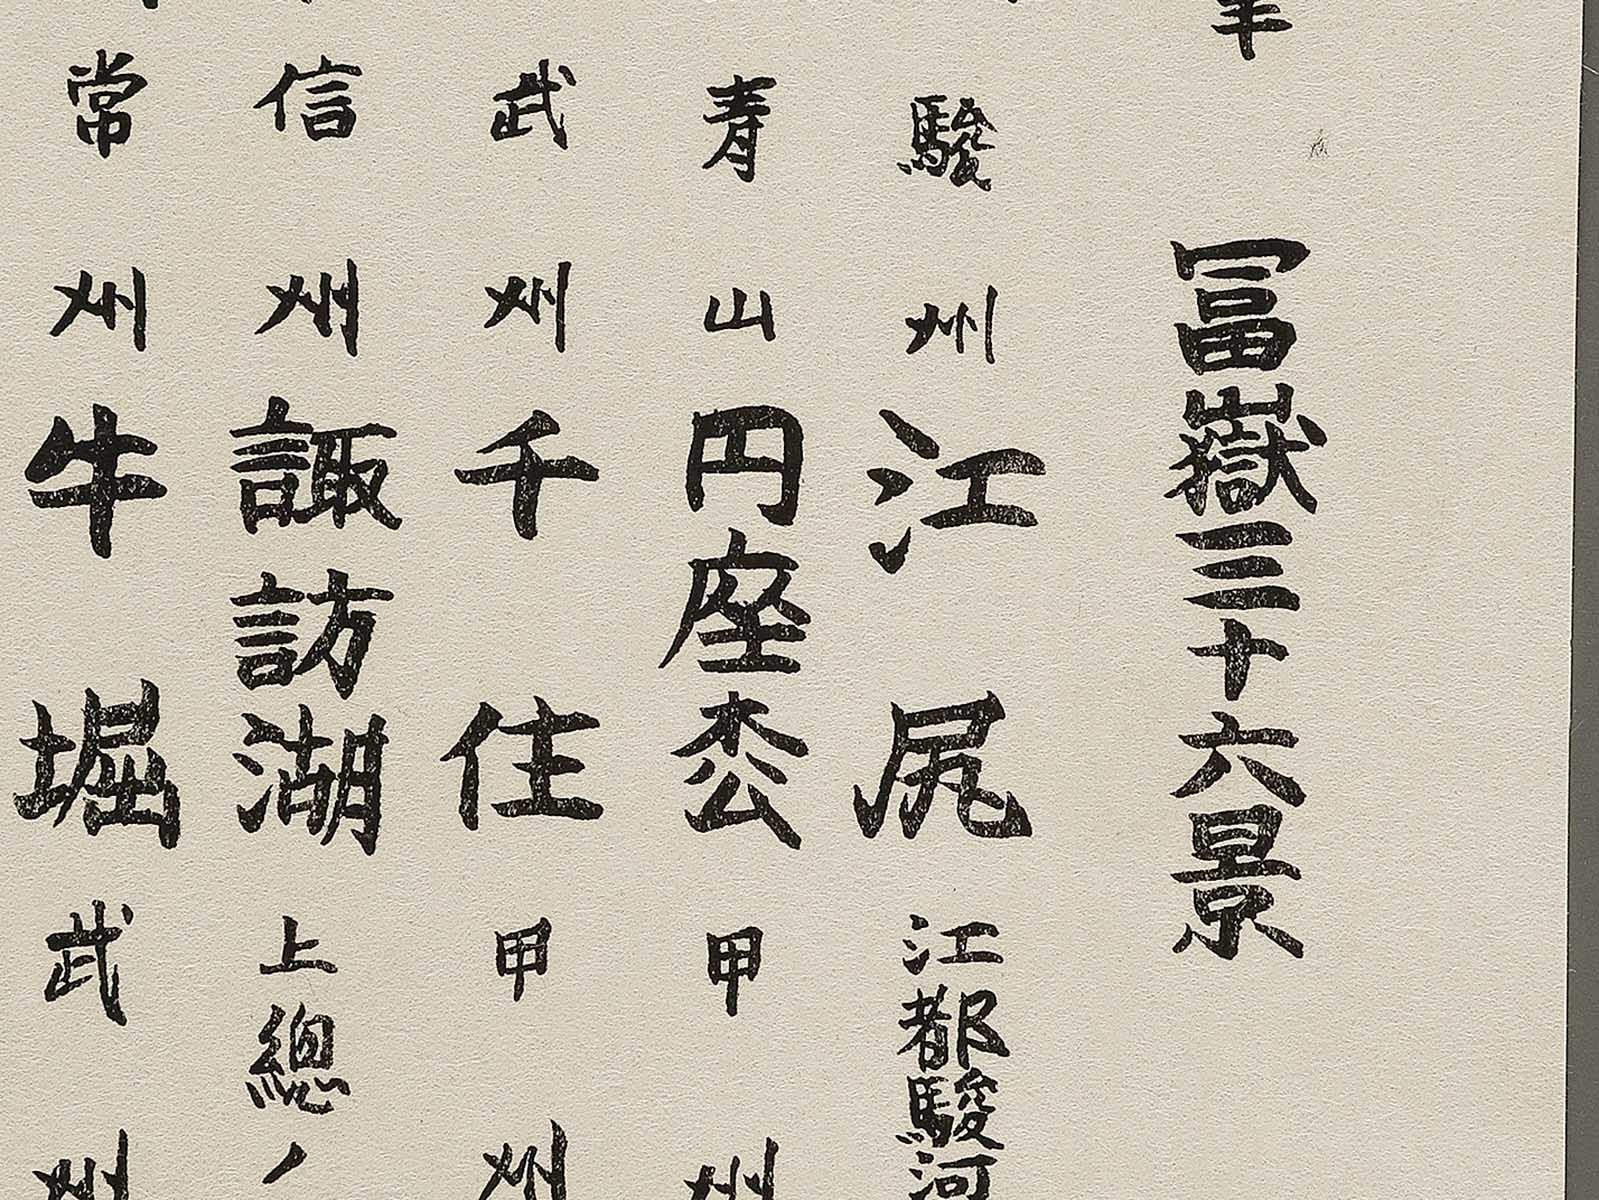 冨嶽三十六景
駿州江尻 江都駿河
青山円座枩 甲州
武州千住 甲州
信州諏訪湖 上總ノ
常州牛堀 武州